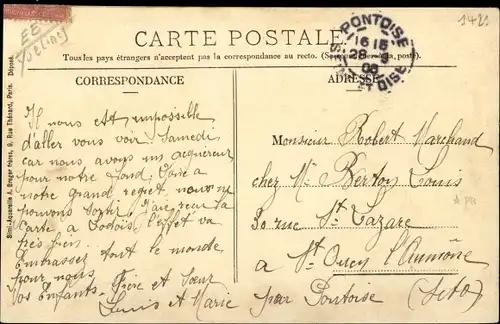 1421
CARTE POSTALE
Tous les pays étrangers n'acceptent pas la correspondance au recto. (Se à la poste).
CORRESPONDANCE
ADRESSE
PONTOISE
16 15
28
08
ET OISE
Simi-Aquarelle A. Breger frères, 9, Rue Thénard, Paris. Déposé.
Il nous est impossible
d'aller vous voir Samedi
car nous avons un acquéreur
pour notre fond,
notre grand regret nous ne
pouvons sortir. J'ai reçu la
carte à l'effet va
très bien.
Embrassez tout le monde
pour nous
Vos Enfants. Frère et Sœur
Louis et Marie
Monsieur Robert Marchand
chez Mr Berton Louis
30 rue St Lazare
à St Ouen l'Aumône
par Pontoise (S et O)